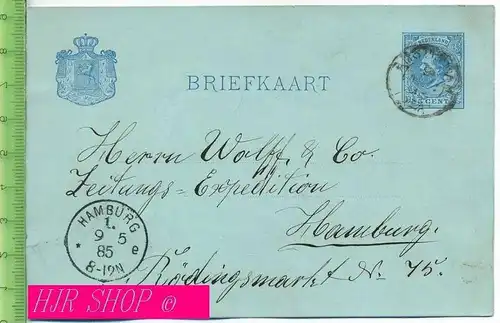 NEDERLAND
BRIEFKAART
CENT
Herrn Wolff & Co.
Zeitungs-Expedition
Hamburg.
Rödingsmarkt Nr. 75.
HAMBURG
1.
9 5
85 e
* 8-12N
HJR SHOP ©